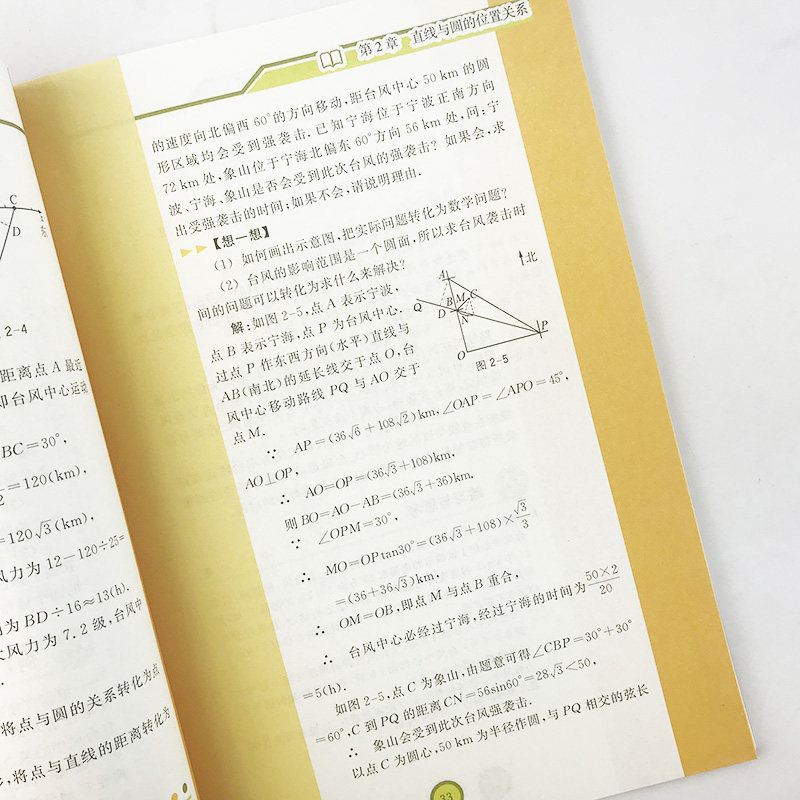 C
D
东
2-4
距离点 A 最近
即台风中心运动
BC=30°,
=120(km),
2
=120√3(km),
风力为 12-120÷25=
为 BD÷16≈13(h).
大风力为 7.2 级,台风中
将点与圆的关系转化为点
,将点与直线的距离转化为
第 2 章 直线与圆的位置关系
的速度向北偏西 60°的方向移动,距台风中心 50 km 的圆
形区域均会受到强袭击.已知宁海位于宁波正南方向
72 km 处,象山位于宁海北偏东 60°方向 56 km 处,问:宁
波、宁海、象山是否会受到此次台风的强袭击? 如果会,求
出受强袭击的时间;如果不会,请说明理由.
【想一想】
(1) 如何画出示意图,把实际问题转化为数学问题?
(2) 台风的影响范围是一个圆面,所以求台风袭击时
间的问题可以转化为求什么来解决?
解:如图 2-5,点 A 表示宁波,
点 B 表示宁海,点 P 为台风中心.
过点 P 作东西方向(水平)直线与
AB(南北)的延长线交于点 O,台
风中心移动路线 PQ 与 AO 交于
点 M.
A
北
B M C
Q
D N
P
O
图 2-5
∵ AP=(36√6+108√2)km,∠OAP=∠APO=45°,
AO⊥OP,
∴ AO=OP=(36√3+108)km,
则 BO=AO-AB=(36√3+36)km.
∵ ∠OPM=30°,
∴ MO=OPtan30°=(36√3+108)×√3/3,
=(36+36√3)km,
∴ OM=OB,即点 M 与点 B 重合,
∴ 台风中心必经过宁海,经过宁海的时间为 50×2/20
=5(h).
如图 2-5,点 C 为象山,由题意可得∠CBP=30°+30°
=60°,C 到 PQ 的距离 CN=56sin60°=28√3<50,
∴ 象山会受到此次台风强袭击.
以点 C 为圆心,50 km 为半径作圆,与 PQ 相交的弦长
33